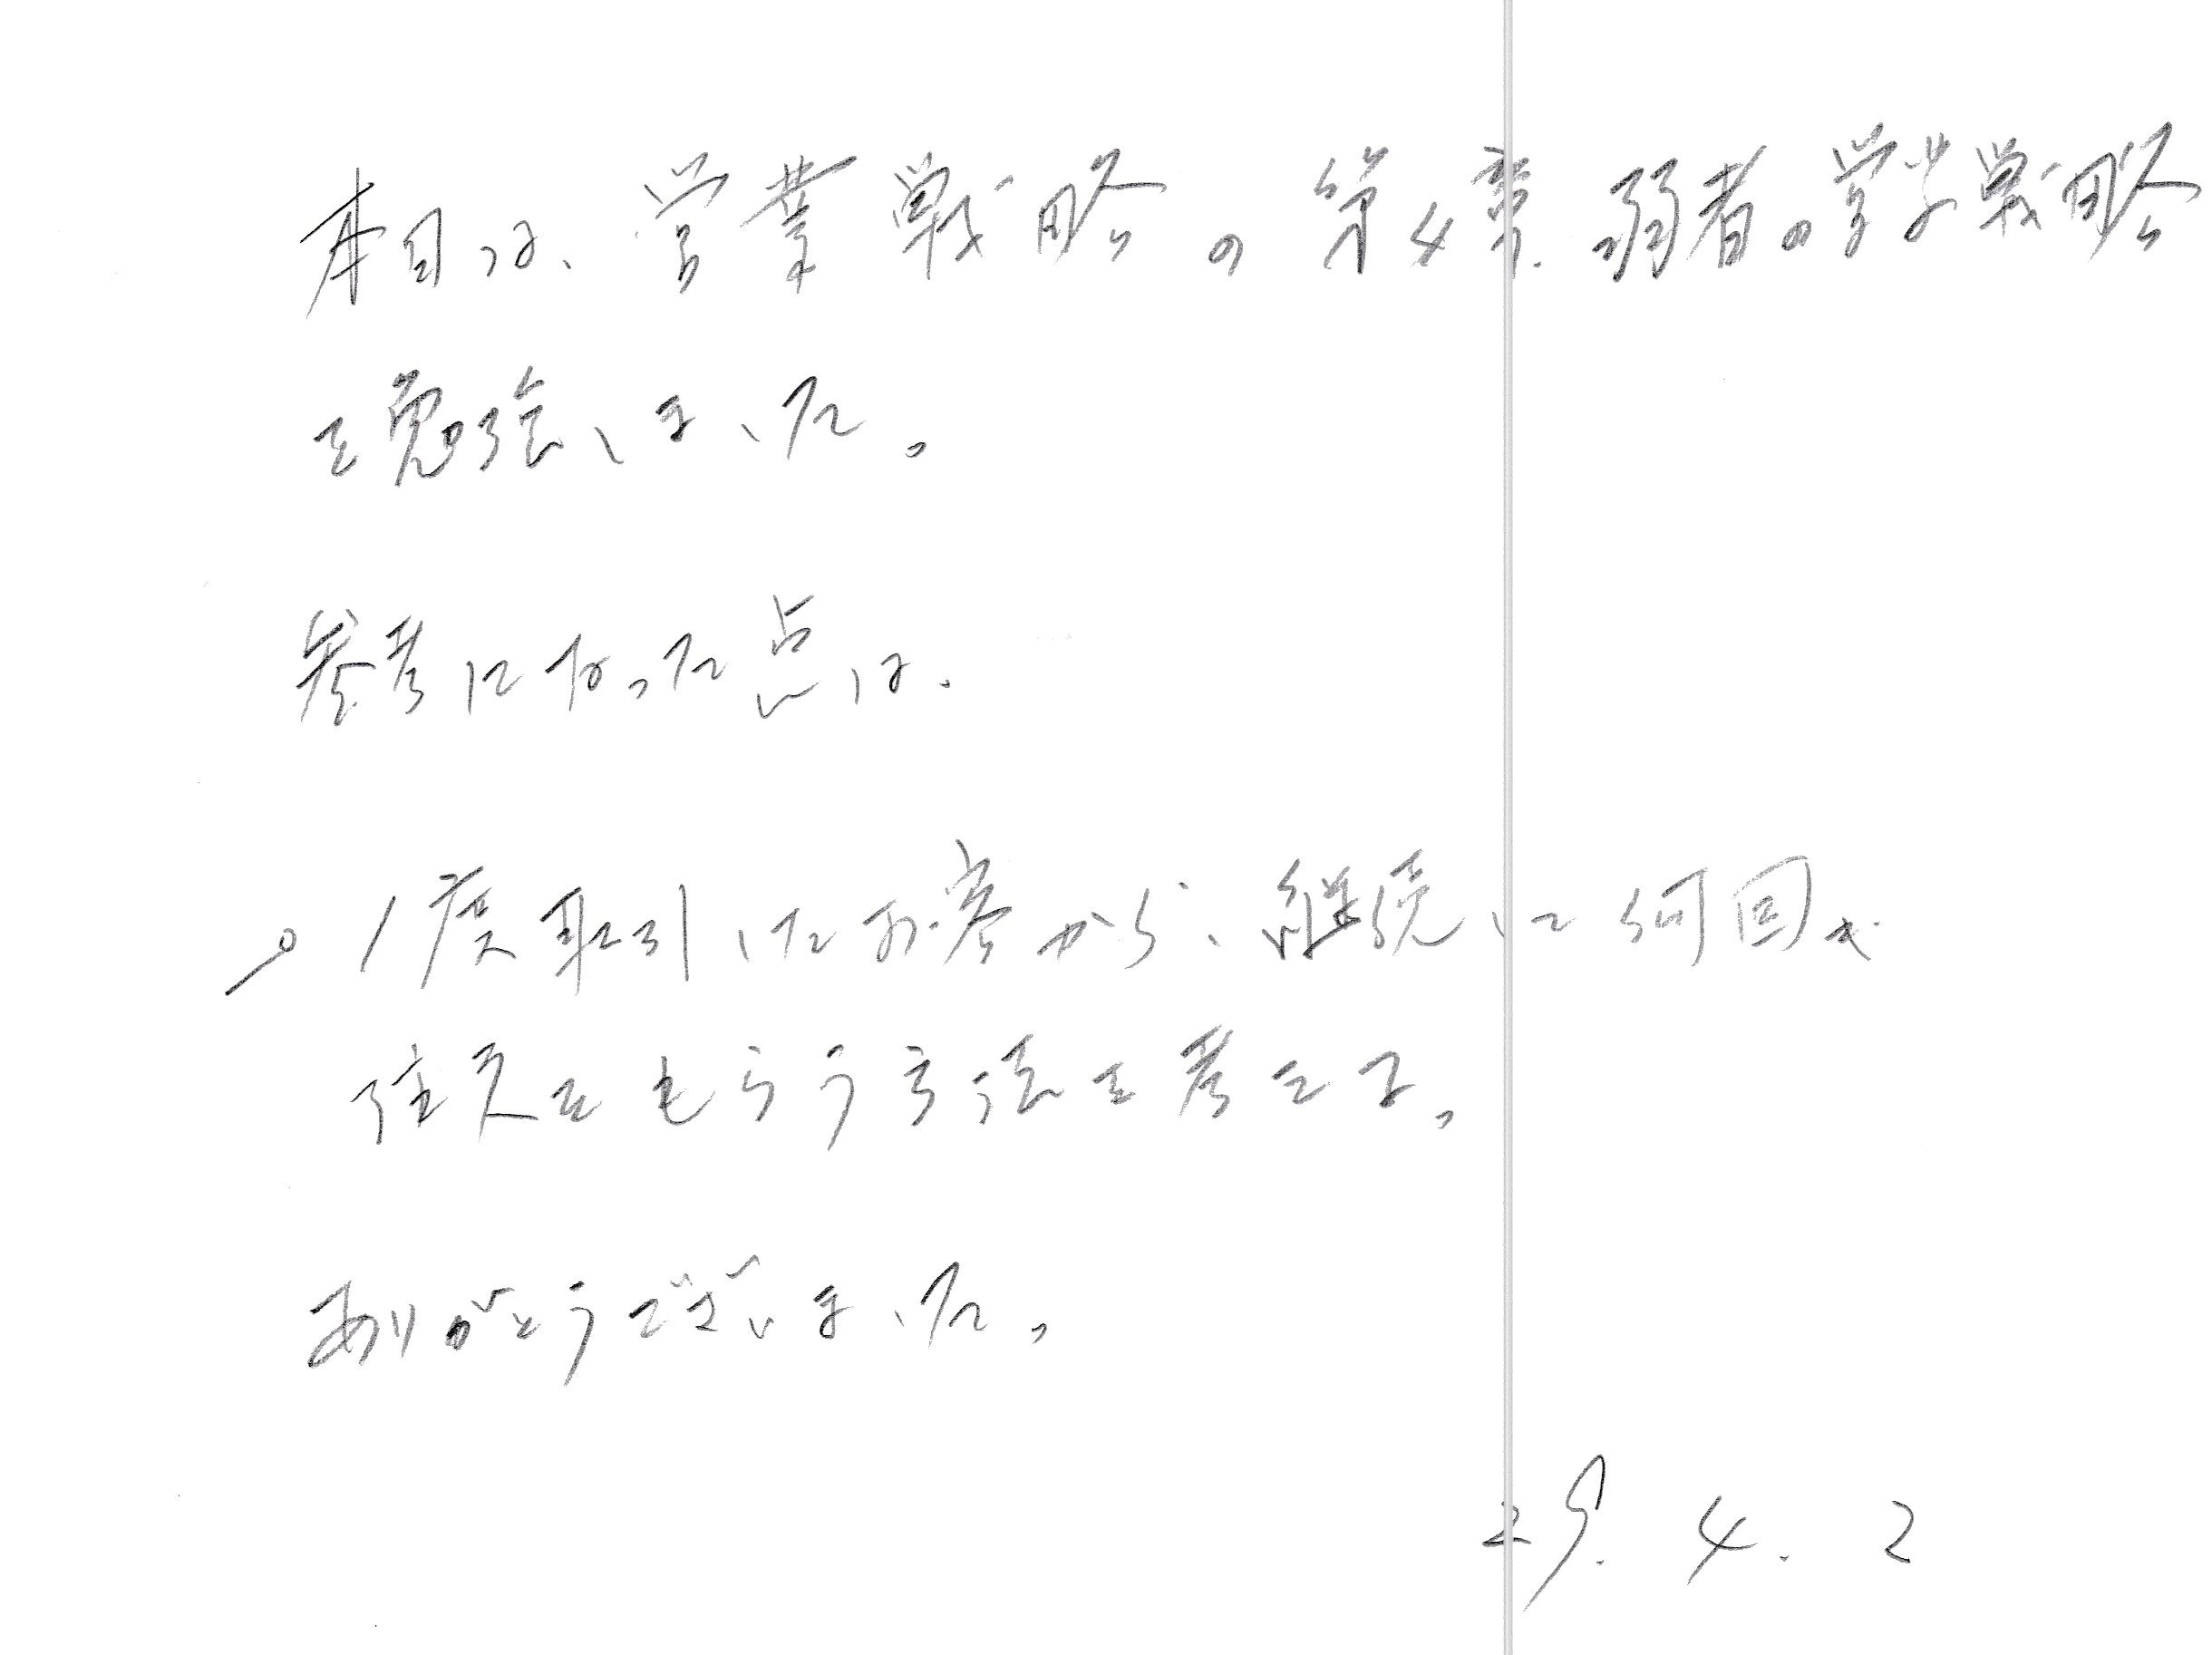 本日は、営業戦略の第4章 弱者の営業戦略
を勉強しました。
参考になった点は、
○ 1度取引したお客から、継続して何回も
注文をもらう方法を考える。
ありがとうございました。
29. 4. 2